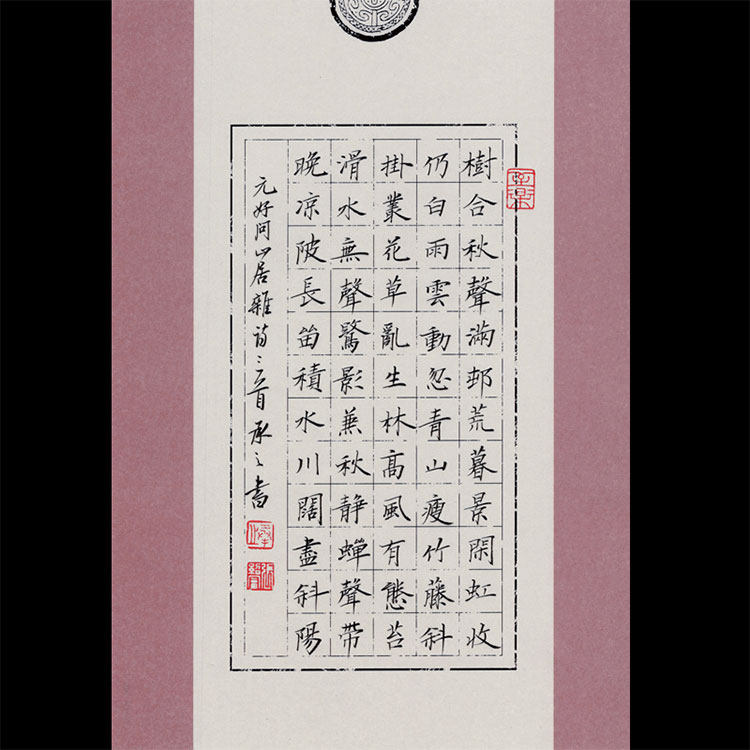 樹合秋聲滿邨荒暮景閑虹收
仍白雨雲動忽青山瘦竹藤斜
掛叢花草亂生林高風有態苔
滑水無聲鷺影兼秋靜蟬聲帶
晚凉陂長留積水川闊盡斜陽
元好问山居雜诗三首承之書